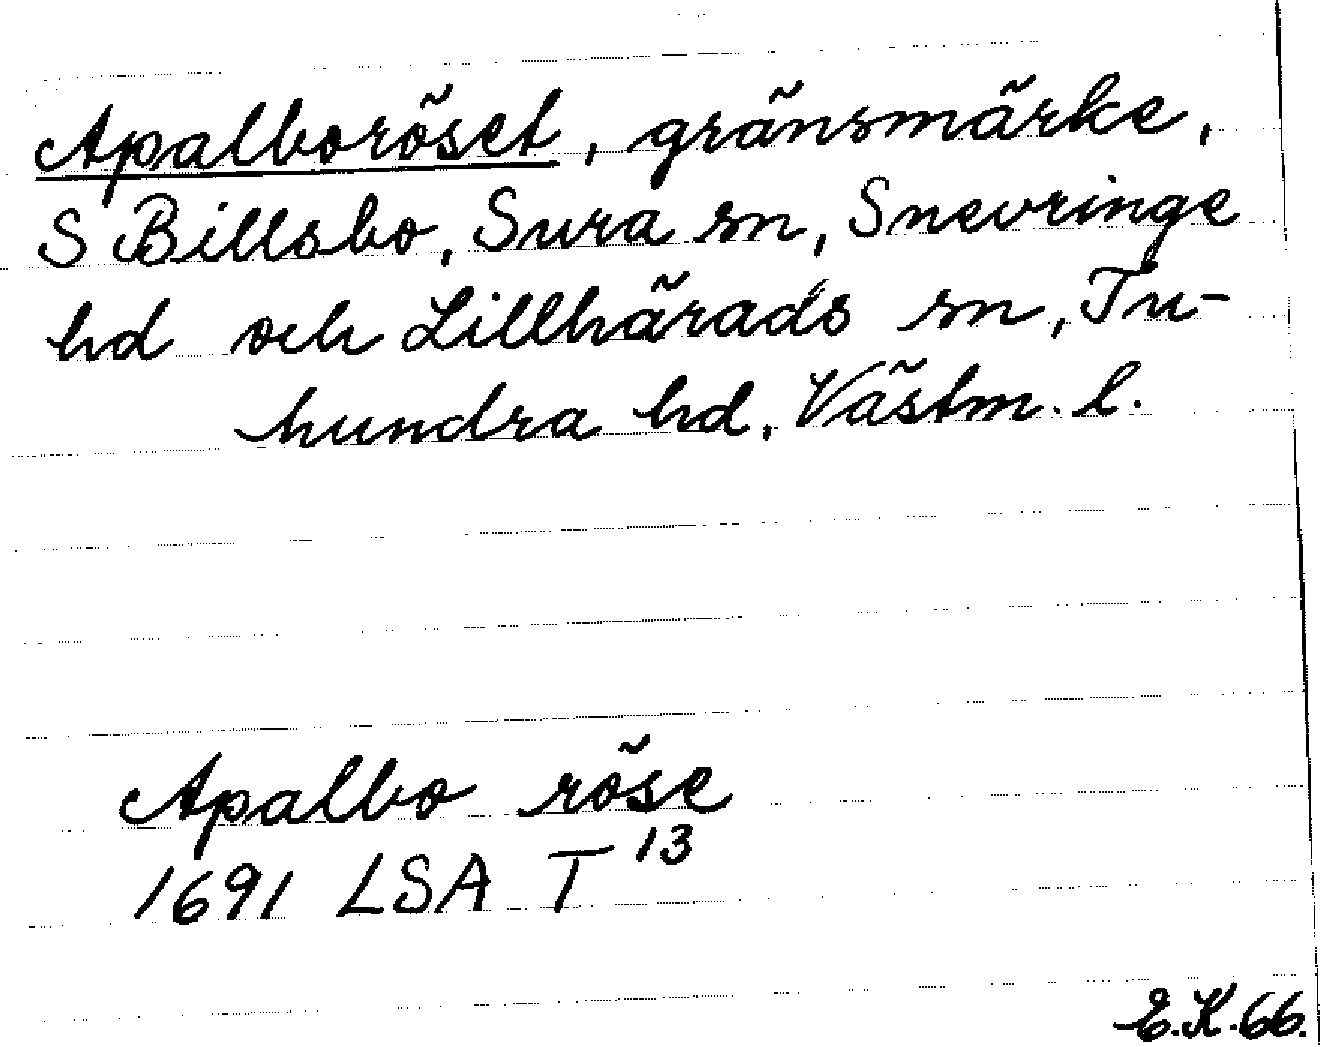 Apalboröset, gränsmärke,
S Billsbo, Sura sn, Snevringe
hd och Lillhärads sn, Tu-
hundra hd, Västm. l.
Apalbo röse
1691 LSA T 13
E.K.66.